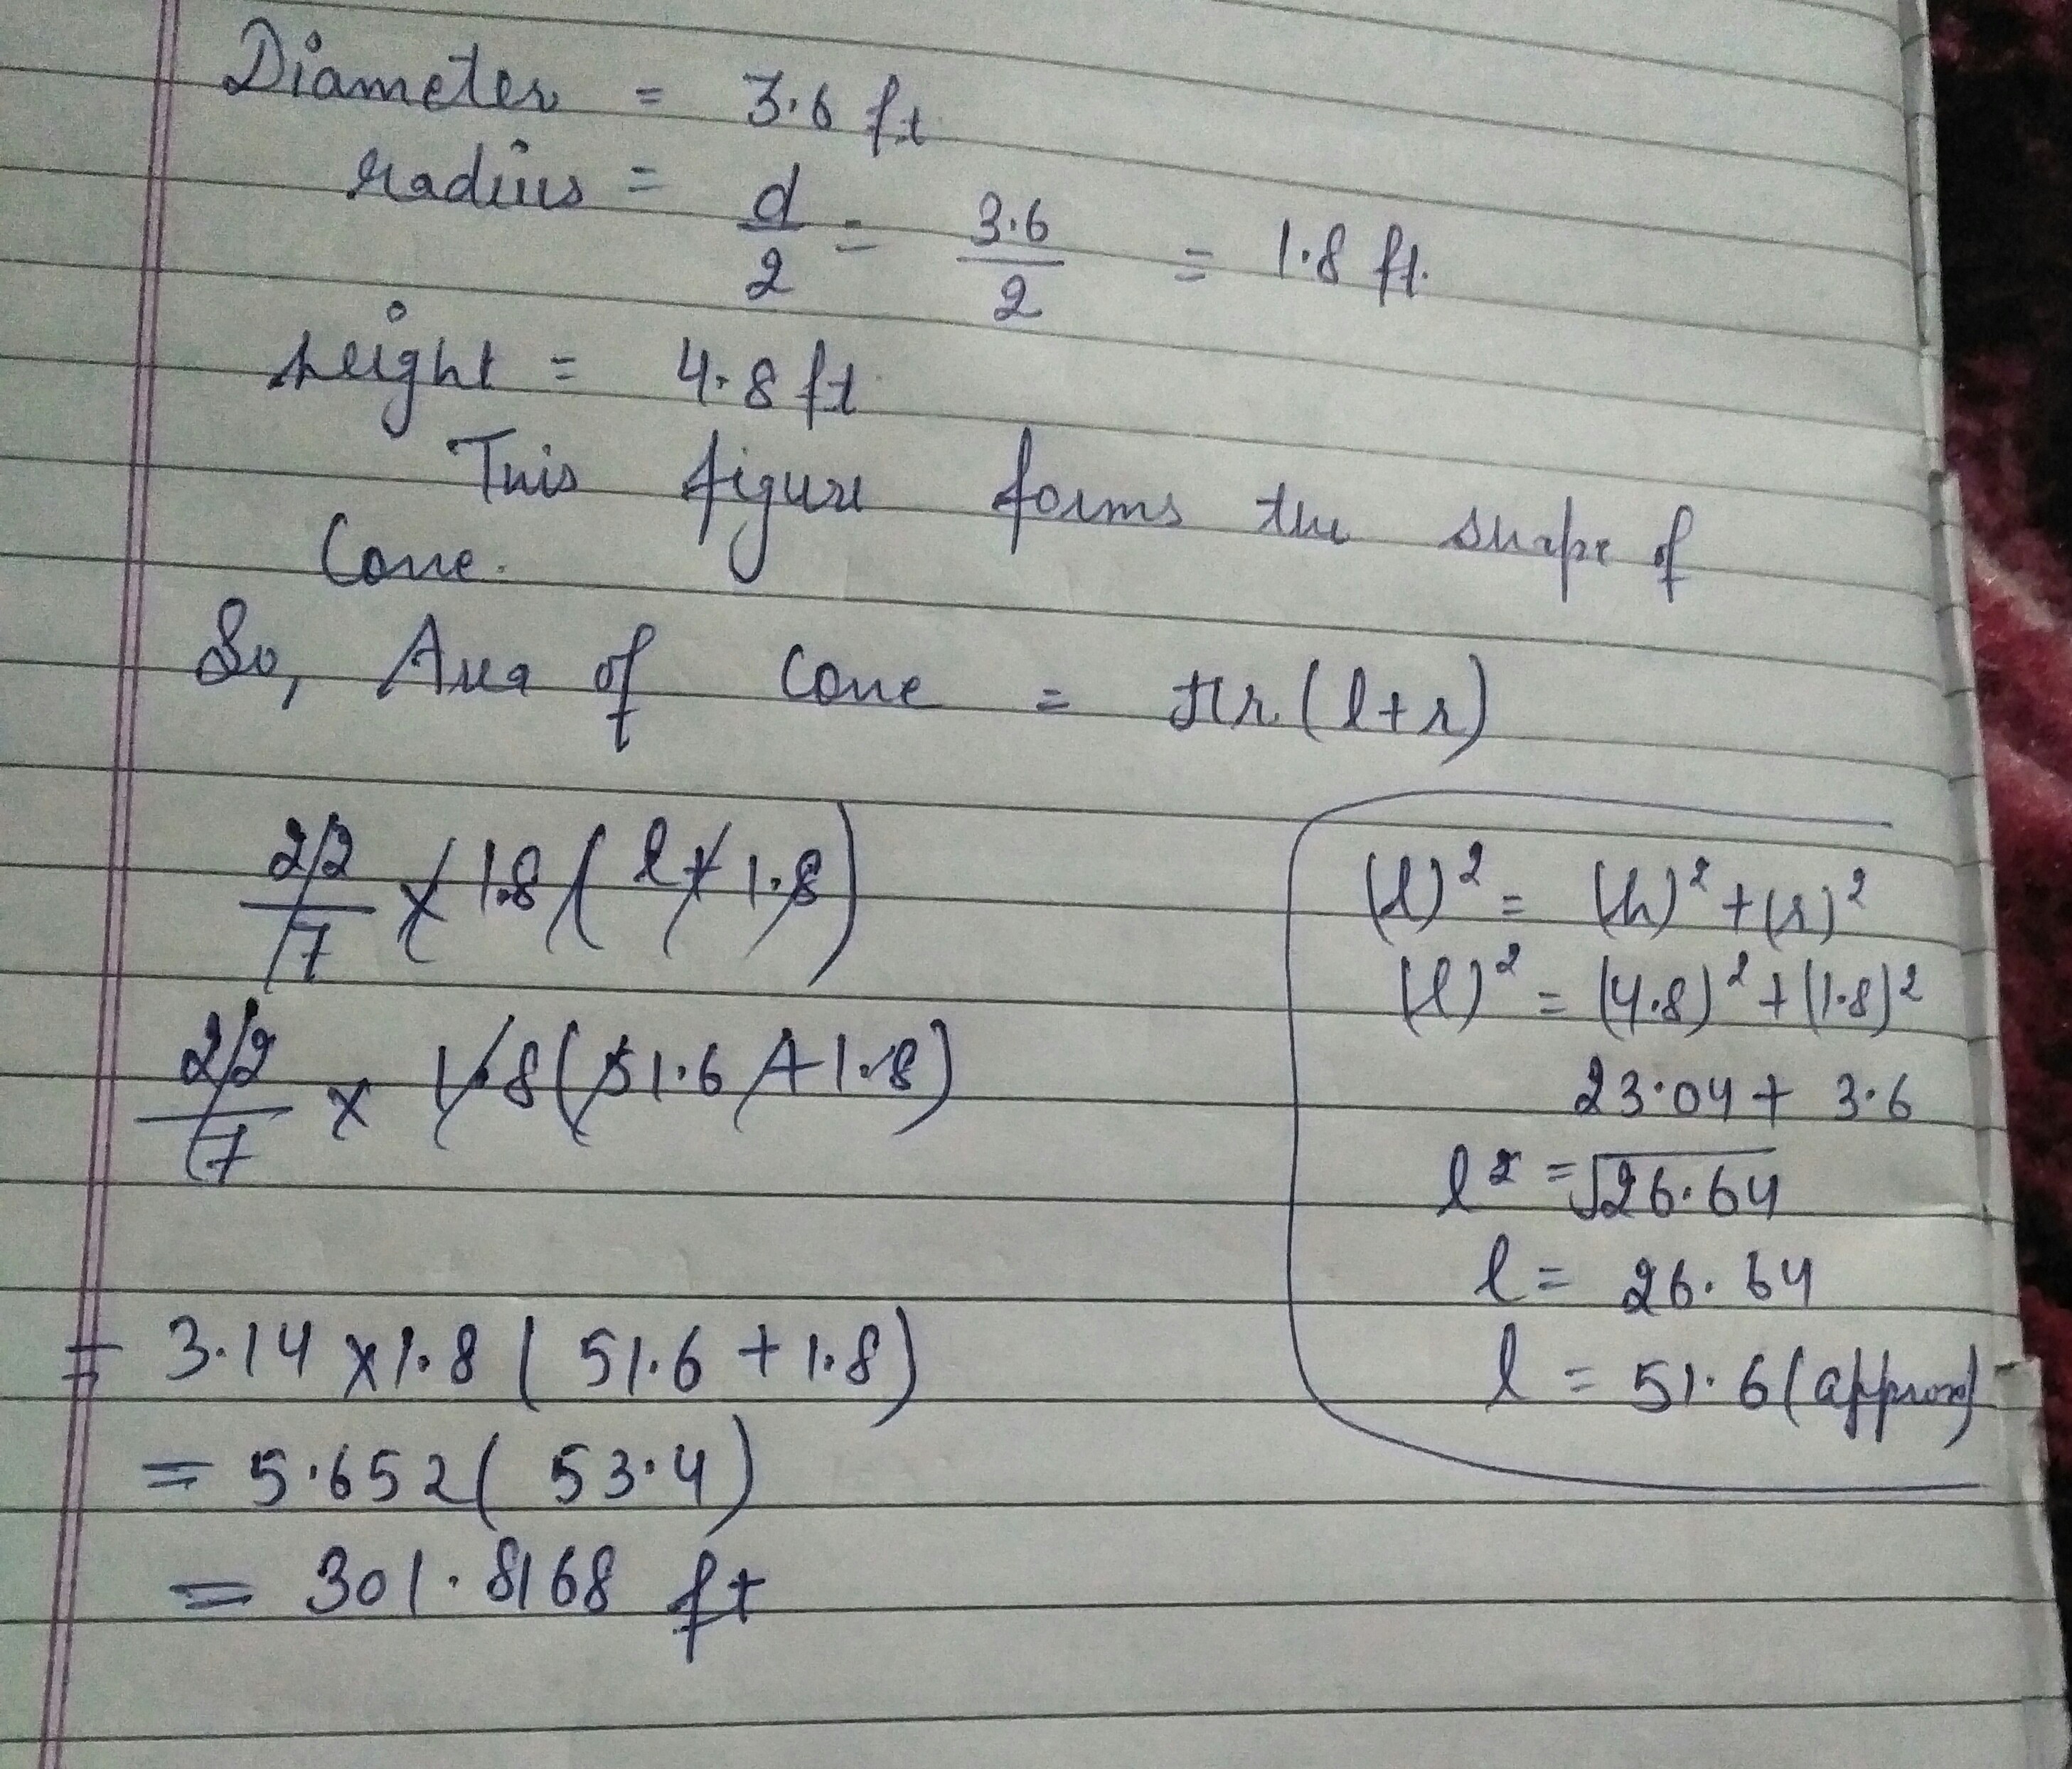 Diameter = 3.6 ft
radius = d/2 = 3.6/2 = 1.8 ft.
height = 4.8 ft
This figure forms the shape of
Cone.
So, Area of Cone = πr(l+r)
22/7 × 1.8 ( l + 1.8 )
22/7 × 1.8 ( 51.6 + 1.8 )
= 3.14 × 1.8 ( 51.6 + 1.8 )
= 5.652 ( 53.4 )
= 301.8168 ft
(l)² = (h)² + (r)²
(l)² = (4.8)² + (1.8)²
23.04 + 3.6
l² = √26.64
l = 26.64
l = 51.6 (approx)